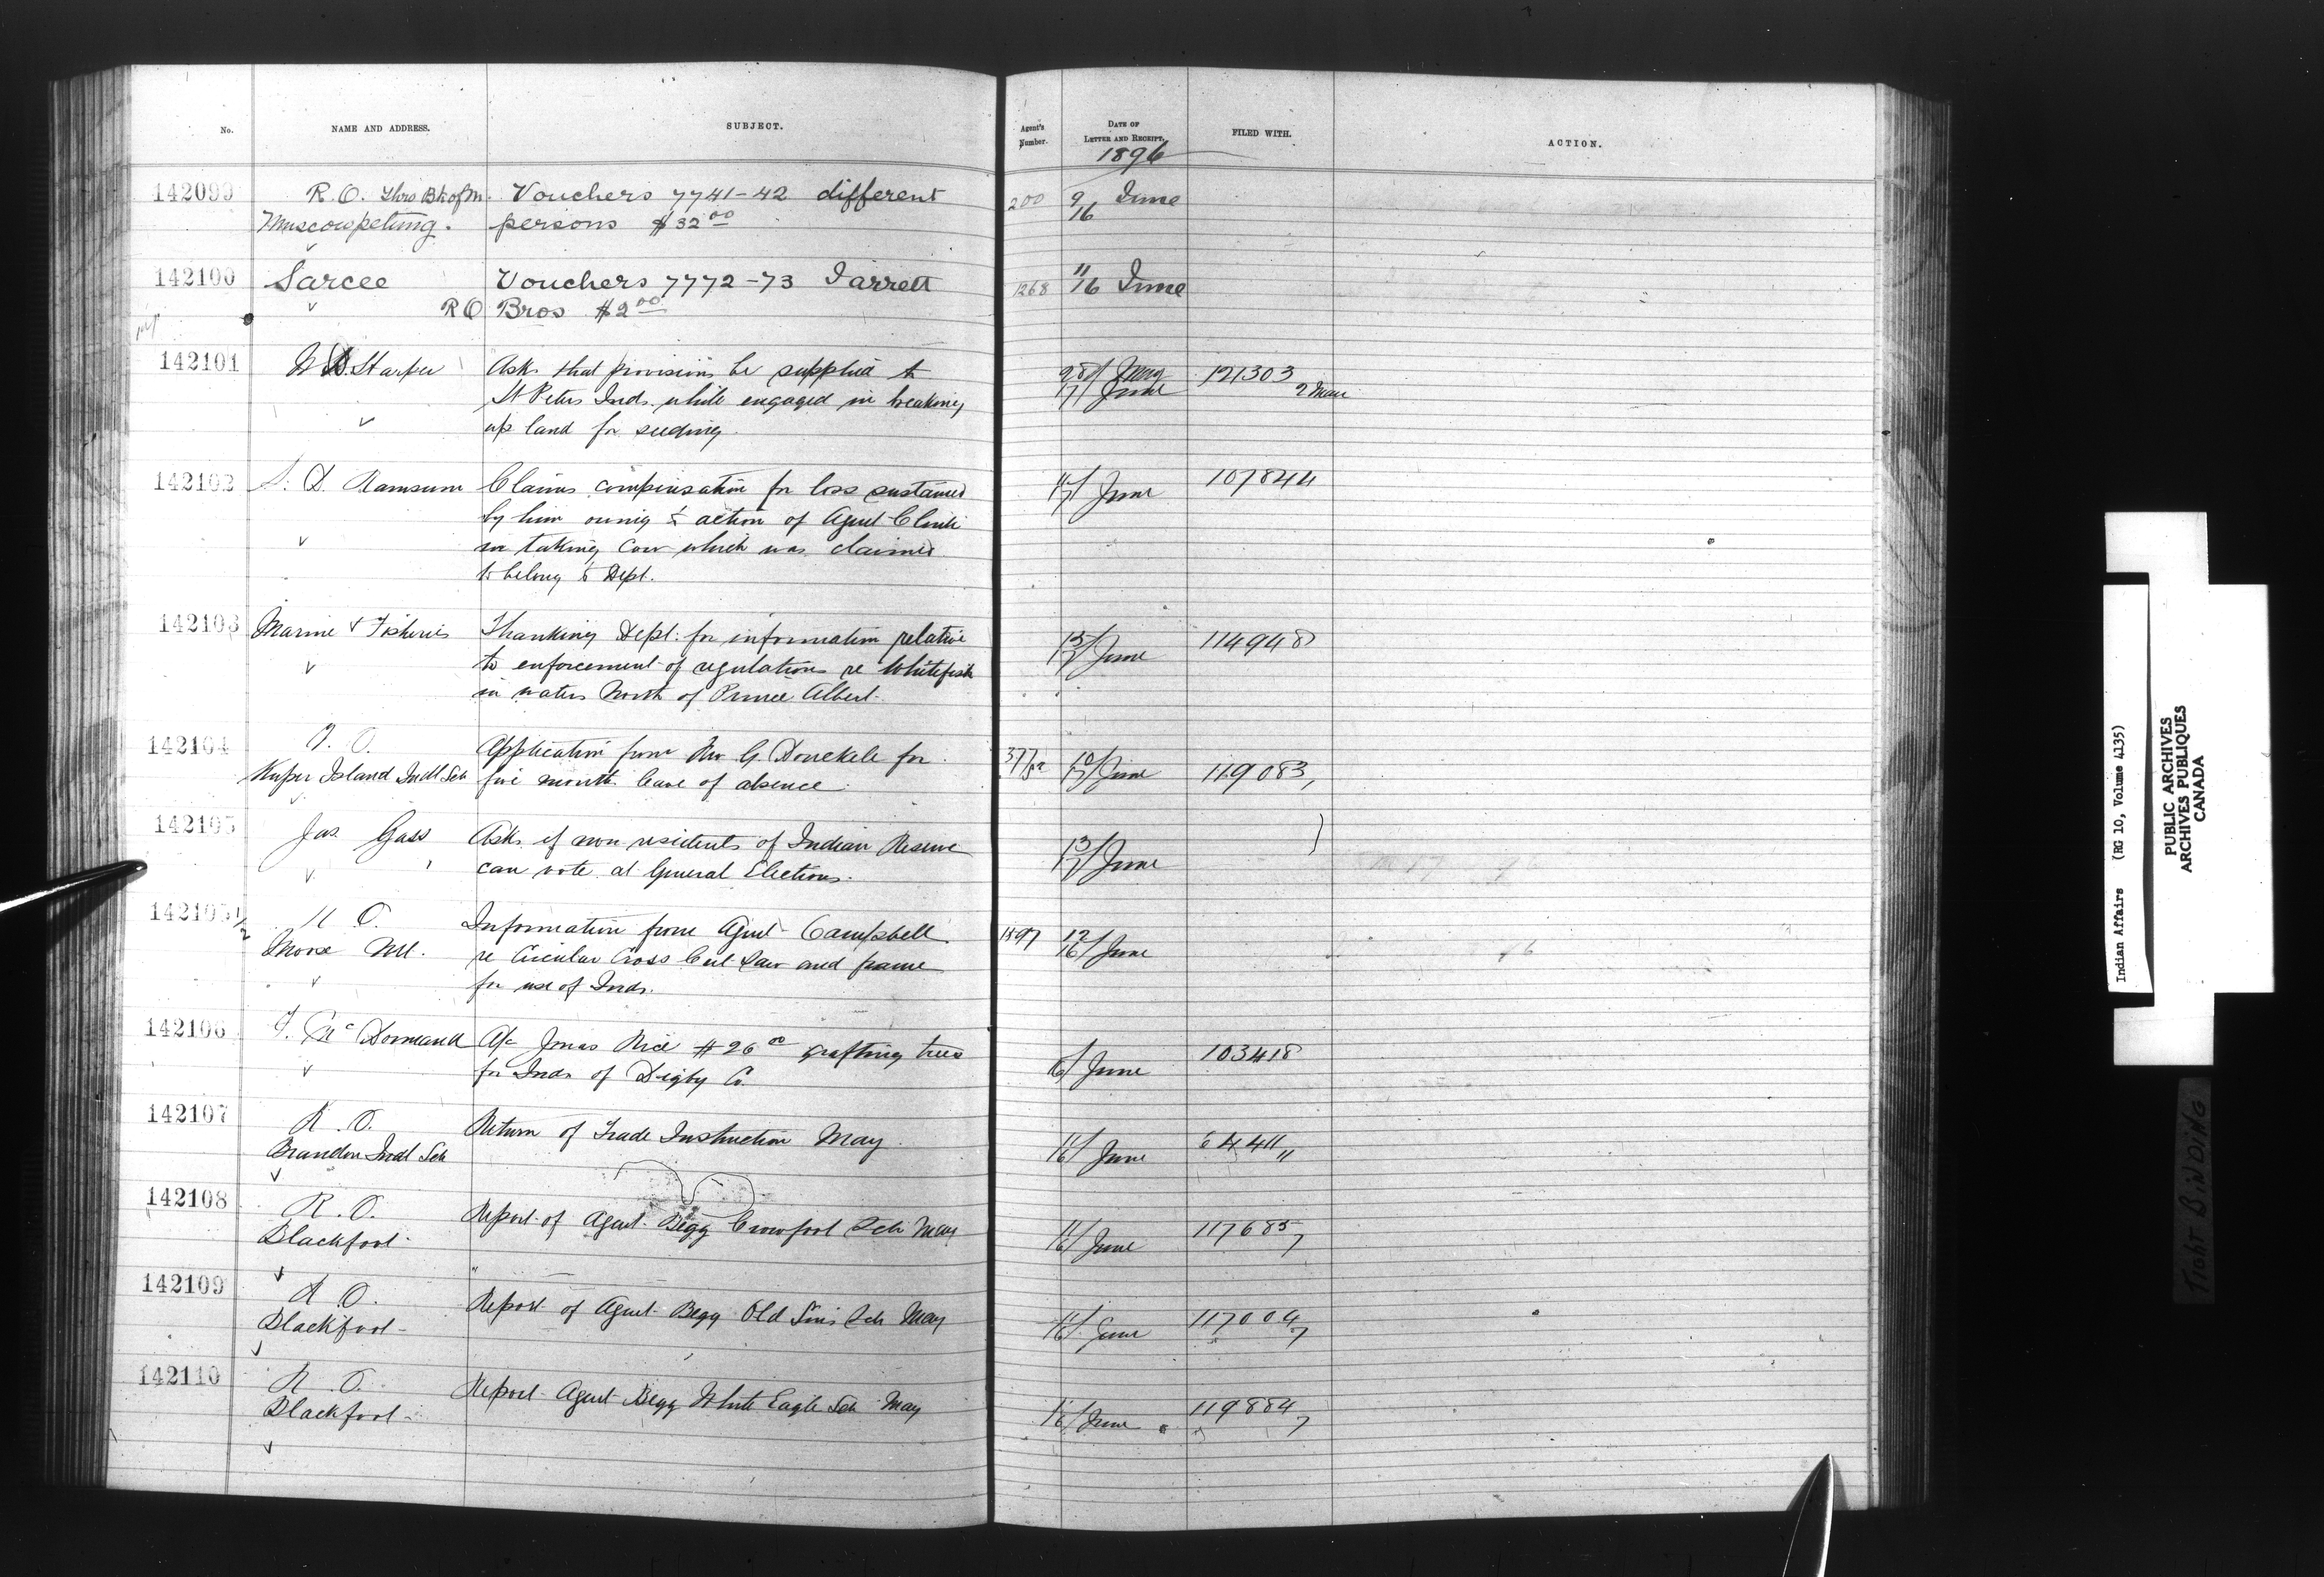 No. NAME AND ADDRESS. SUBJECT. Agent's Number. DATE OF LETTER AND RECEIPT. FILED WITH. ACTION.
1896
142099 R.O. Thro Bk of M. Vouchers 7741-42 different 200 9 June
Muscowpetung. persons $32 00 16
142100 Sarcee Vouchers 7772-73 Jarrett 1268 11 June
RO Bros $2 00 16
142101 Asks that provisions be supplied to 28/ May 121303
St Peters Inds. while engaged in breaking 17/ June
up land for seeding.
142102 Claims compensation for loss sustained June 107844
by him owing to action of Agent
in taking cow which was claimed
to belong to Dept.
142103 Marine & Fisheries Thanking Dept. for information relative 13/17 June 114948
to enforcement of regulations re Whitefish
in waters North of Prince Albert.
142104 Application from Rev G. Donckele for 10/17 June 119083
Kuper Island Indl Sch five month leave of absence.
142105 Jas. Gass Asks if non residents of Indian Reserve 13/17 June
can vote at General Elections.
142105 1/2 R O. Information from Agent Campbell 1897 12/16 June
Moose Mt. re Circular Cross Cut Saw and frame
for use of Inds.
142106 F. McDormand A/c Jonas Rice $26 00 grafting trees 16/ June 103418
for Inds of Digby Co.
142107 R.O. Return of Trade Instruction May. 11/16 June 64411
Brandon Indl Sch
142108 R.O. Report of Agent Begg Crowfoot Sch May 11/16 June 117685
Blackfoot 7
142109 R.O. Report of Agent Begg Old Suns Sch May 11/16 June 117004
Blackfoot 7
142110 R.O. Report Agent Begg White Eagle Sch May 11/16 June 119884
Blackfoot 7
Indian Affairs (RG 10, Volume 4135)
PUBLIC ARCHIVES
ARCHIVES PUBLIQUES
CANADA
TIGHT BINDING